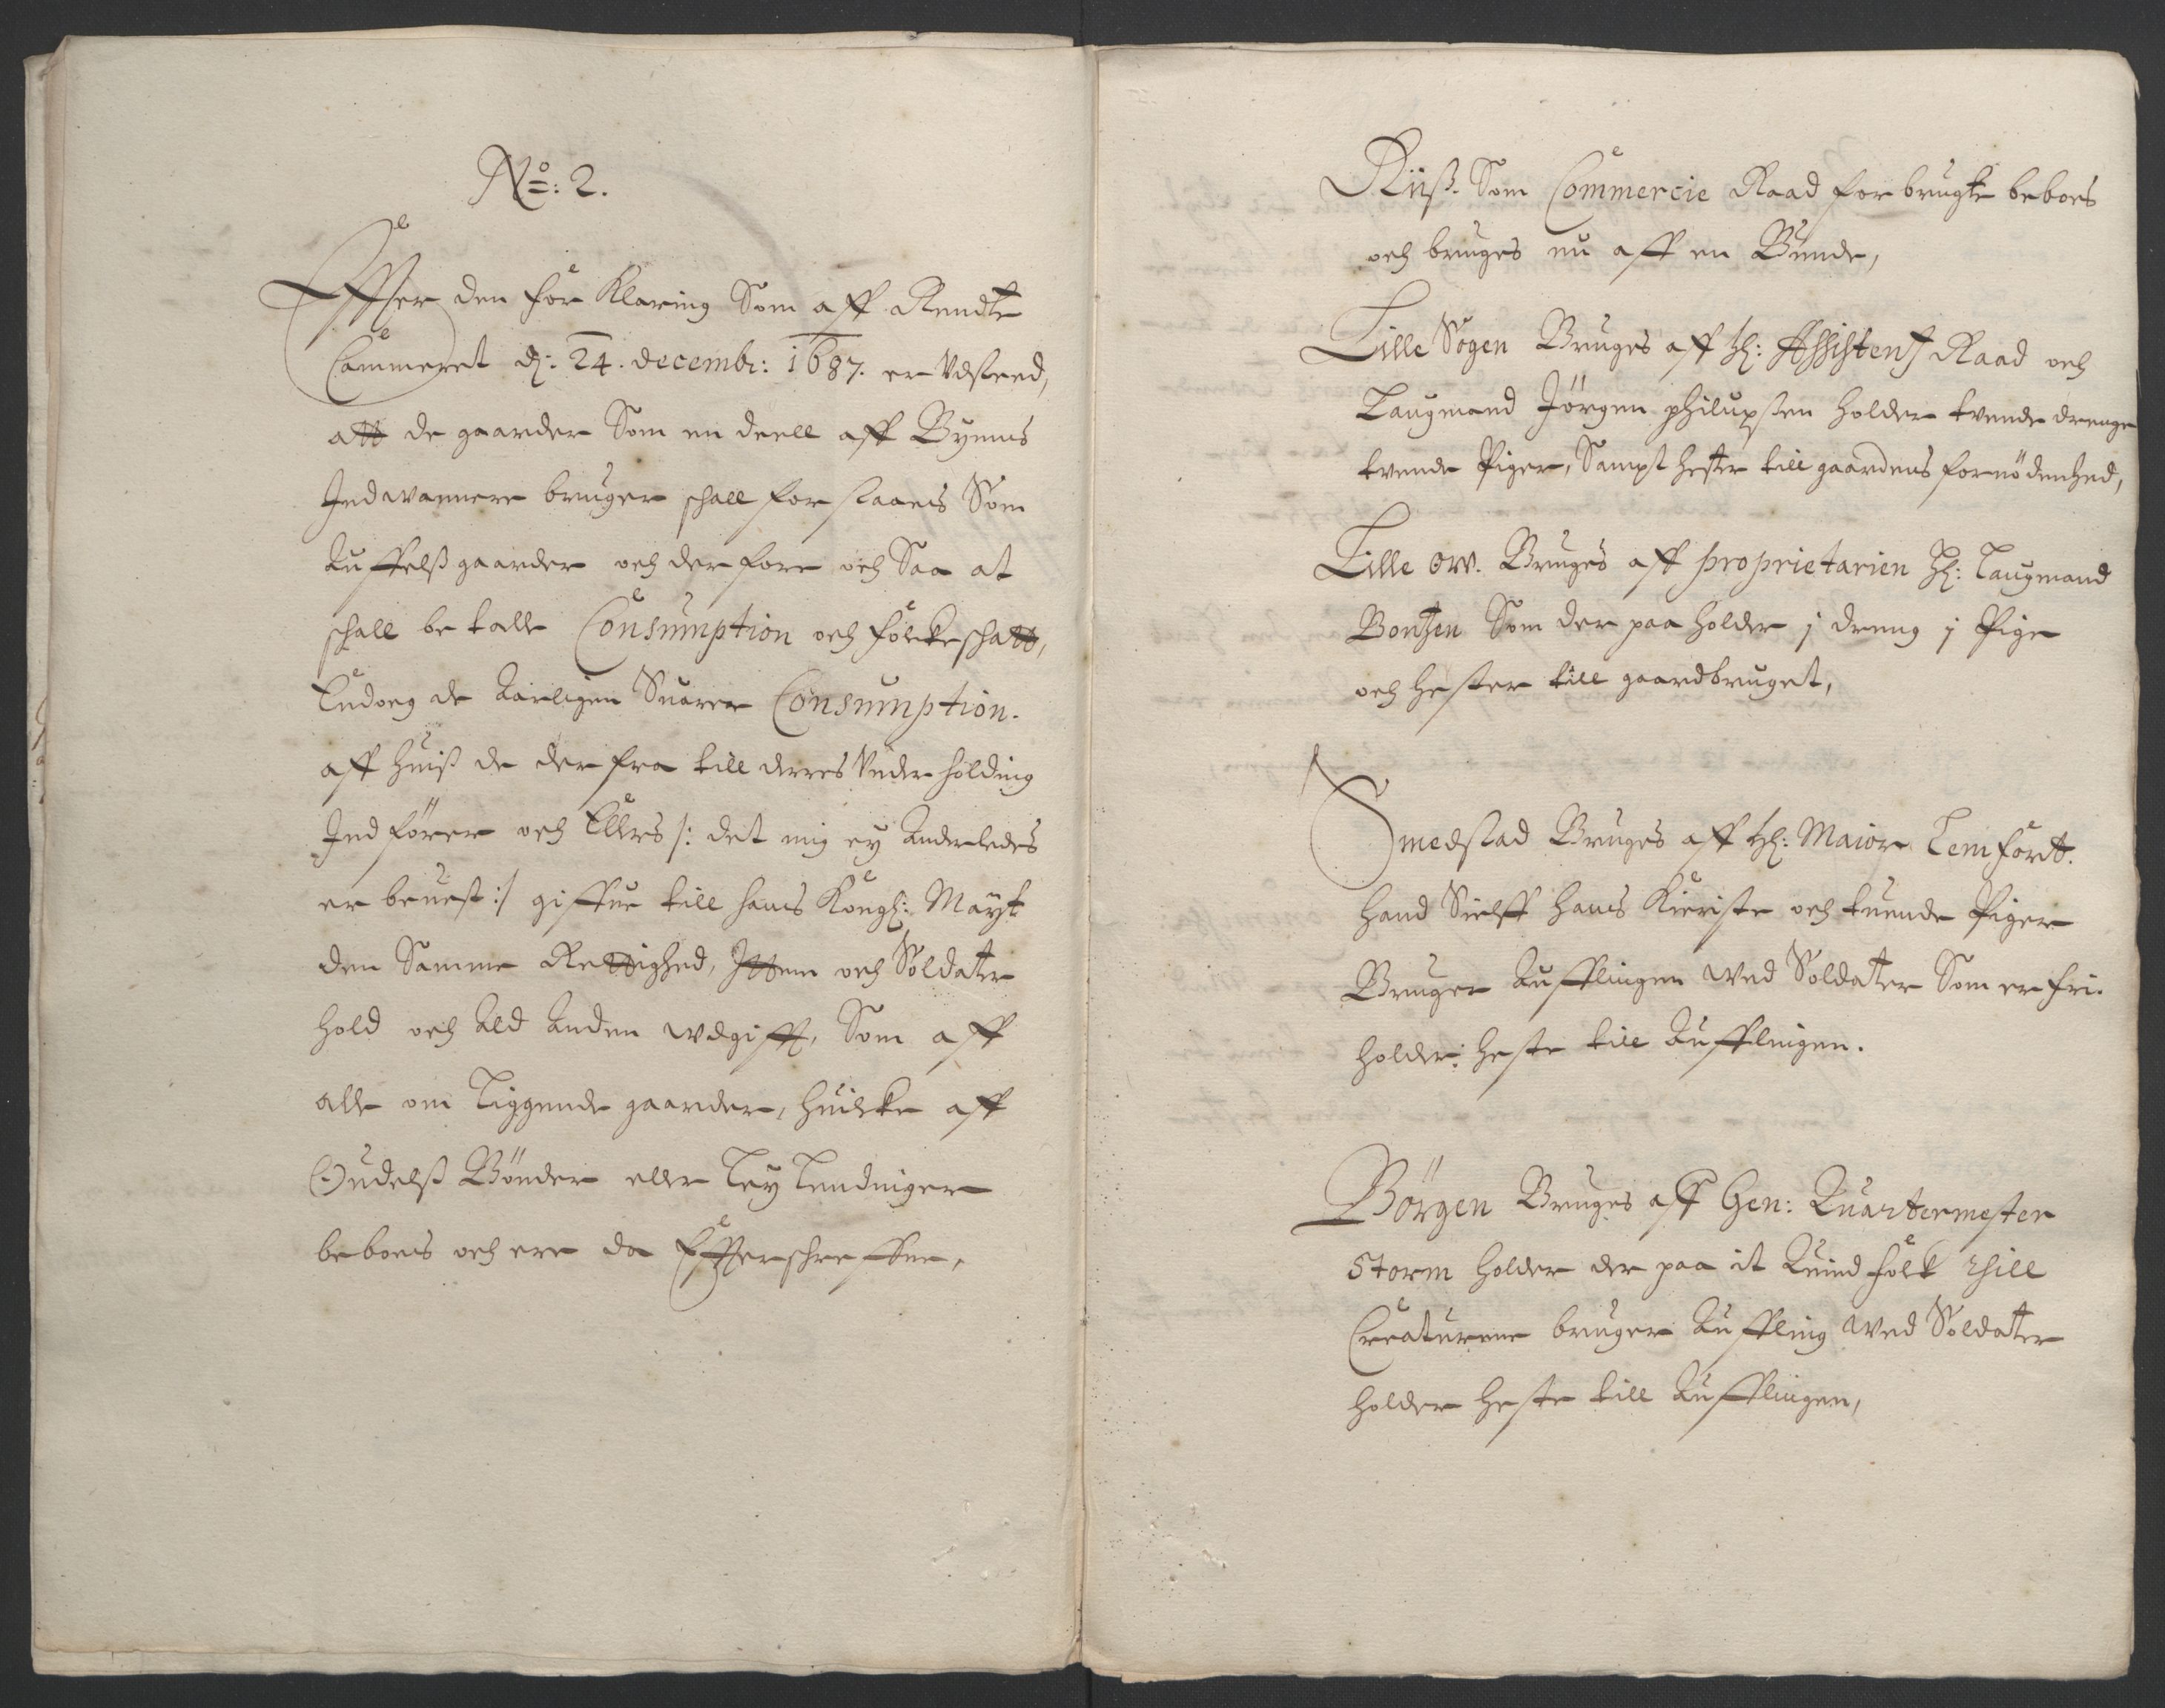 No: 2.
Effter den for Klaring Som aff Rendte
Cammeret d: 24. decembr: 1687. er Vdsteed,
att de gaarder Som en deell aff Byens
Indwaanere bruger schall for staaes Som
Auffelsgaarder och der fore och Saa at
schall be talle Consumption och folckeschatt,
Endoeg de Aarligen Suarer Consumption.
aff huiss de der fra till deres Vnder holding
Ind förer och Ellers /: det mig ey Anderledes
er beuest :/ giffue till hans Kongl: Mayt
den Samme Rettighed, Ittem och Soldater
hold och Ald Anden wdgifft, Som aff
alle om Liggende gaarder, huilcke aff
Oudelss Bönder eller Ley Lendinger
beboes och ere da Effterschreffne,
Riiss. Som Commercie Raad for brugte beboes
och bruges nu aff en Bunde,
Lille Sogen Bruges aff hl: Assistentz Raad och
Laugmand Jörgen philupsen holder tvende drenge
tvende Piger, Sampt hester till gaardens fornödenhed,
Lille ow. Bruges aff proprietarien Hl: Laugmand
Bontzen Som der paa holder j dreng j Pige
och hester till gaardbruget,
Smedstad Bruges aff hl: Maior Lemfort.
hand Sielff hans Kieriste och tuende Piger
Bruger Aufflingen wed Soldater Som er fri.
holder: heste till Aufflingen.
Börgen Bruges aff Gen: Quartermester
Storm holder der paa it Quindfolck thill
Creaturene bruger Auffling wed Soldater
holder heste till Aufflingen,